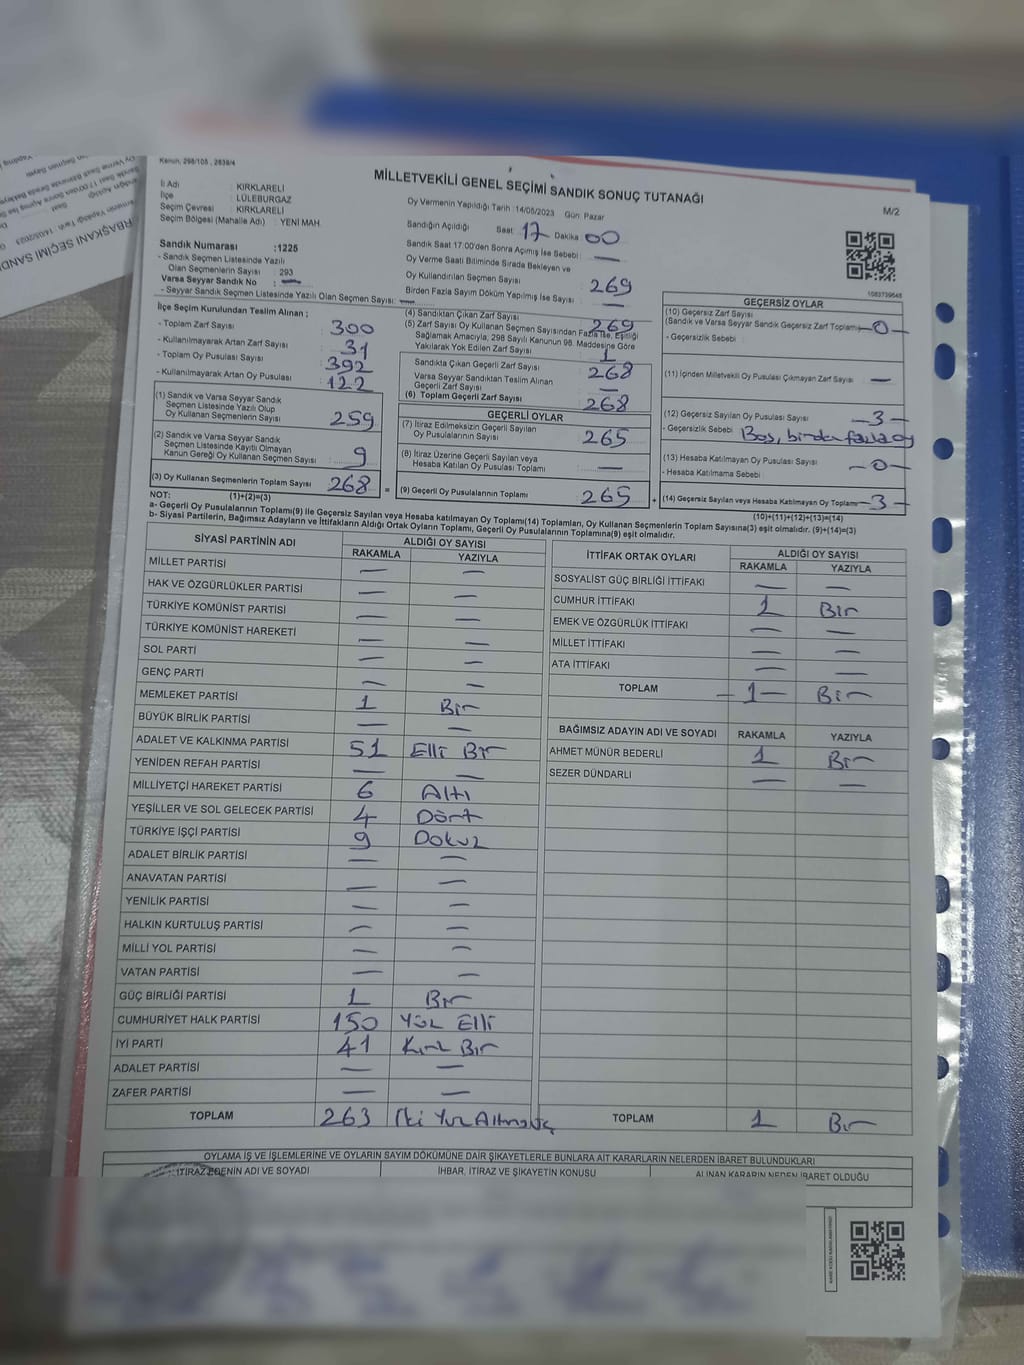 Kanun, 298/105 , 2839/4
MİLLETVEKİLİ GENEL SEÇİMİ SANDIK SONUÇ TUTANAĞI
M/2
İl Adı : KIRKLARELİ
İlçe : LÜLEBURGAZ
Seçim Çevresi : KIRKLARELİ
Seçim Bölgesi (Mahalle Adı) : YENİ MAH.
Oy Vermenin Yapıldığı Tarih :14/05/2023 Gün: Pazar
Sandığın Açıldığı Saat 17 Dakika 00
Sandık Saat 17:00'den Sonra Açılmış İse Sebebi : —
Oy Verme Saati Bitiminde Sırada Bekleyen ve
Oy Kullandırılan Seçmen Sayısı 269
Birden Fazla Sayım Döküm Yapılmış İse Sayısı : —
Sandık Numarası :1225
- Sandık Seçmen Listesinde Yazılı
Olan Seçmenlerin Sayısı : 293
Varsa Seyyar Sandık No : —
- Seyyar Sandık Seçmen Listesinde Yazılı Olan Seçmen Sayısı: —
İlçe Seçim Kurulundan Teslim Alınan ;
- Toplam Zarf Sayısı : 300
- Kullanılmayarak Artan Zarf Sayısı : 31
- Toplam Oy Pusulası Sayısı : 392
- Kullanılmayarak Artan Oy Pusulası : 122
(1) Sandık ve Varsa Seyyar Sandık
Seçmen Listesinde Yazılı Olup
Oy Kullanan Seçmenlerin Sayısı 259
(2) Sandık ve Varsa Seyyar Sandık
Seçmen Listesinde Kayıtlı Olmayan
Kanun Gereği Oy Kullanan Seçmen Sayısı 9
(3) Oy Kullanan Seçmenlerin Toplam Sayısı 268 =
(1)+(2)=(3)
(4) Sandıktan Çıkan Zarf Sayısı 269
(5) Zarf Sayısı Oy Kullanan Seçmen Sayısından Fazla İse, Eşitliği
Sağlamak Amacıyla, 298 Sayılı Kanunun 98. Maddesine Göre
Yakılarak Yok Edilen Zarf Sayısı 1
Sandıkta Çıkan Geçerli Zarf Sayısı 268
Varsa Seyyar Sandıktan Teslim Alınan
Geçerli Zarf Sayısı —
(6) Toplam Geçerli Zarf Sayısı 268
GEÇERLİ OYLAR
(7) İtiraz Edilmeksizin Geçerli Sayılan
Oy Pusulalarının Sayısı 265
(8) İtiraz Üzerine Geçerli Sayılan veya
Hesaba Katılan Oy Pusulası Toplamı —
(9) Geçerli Oy Pusulalarının Toplamı 265 +
1083739648
GEÇERSİZ OYLAR
(10) Geçersiz Zarf Sayısı
(Sandık ve Varsa Seyyar Sandık Geçersiz Zarf Toplamı) —0—
- Geçersizlik Sebebi :
(11) İçinden Milletvekili Oy Pusulası Çıkmayan Zarf Sayısı —
(12) Geçersiz Sayılan Oy Pusulası Sayısı —3—
- Geçersizlik Sebebi : Boş, birden fazla oy
(13) Hesaba Katılmayan Oy Pusulası Sayısı —0—
- Hesaba Katılmama Sebebi :
(14) Geçersiz Sayılan veya Hesaba Katılmayan Oy Toplamı —3—
(10)+(11)+(12)+(13)=(14)
NOT:
a- Geçerli Oy Pusulalarının Toplamı(9) ile Geçersiz Sayılan veya Hesaba katılmayan Oy Toplamı(14) Toplamları, Oy Kullanan Seçmenlerin Toplam Sayısına(3) eşit olmalıdır. (9)+(14)=(3)
b- Siyasi Partilerin, Bağımsız Adayların ve İttifakların Aldığı Ortak Oyların Toplamı, Geçerli Oy Pusulalarının Toplamına(9) eşit olmalıdır.
SİYASİ PARTİNİN ADI ALDIĞI OY SAYISI
RAKAMLA YAZIYLA
MİLLET PARTİSİ — —
HAK VE ÖZGÜRLÜKLER PARTİSİ — —
TÜRKİYE KOMÜNİST PARTİSİ — —
TÜRKİYE KOMÜNİST HAREKETİ — —
SOL PARTİ — —
GENÇ PARTİ — —
MEMLEKET PARTİSİ 1 Bir
BÜYÜK BİRLİK PARTİSİ — —
ADALET VE KALKINMA PARTİSİ 51 Elli Bir
YENİDEN REFAH PARTİSİ — —
MİLLİYETÇİ HAREKET PARTİSİ 6 Altı
YEŞİLLER VE SOL GELECEK PARTİSİ 4 Dört
TÜRKİYE İŞÇİ PARTİSİ 9 Dokuz
ADALET BİRLİK PARTİSİ — —
ANAVATAN PARTİSİ — —
YENİLİK PARTİSİ — —
HALKIN KURTULUŞ PARTİSİ — —
MİLLİ YOL PARTİSİ — —
VATAN PARTİSİ — —
GÜÇ BİRLİĞİ PARTİSİ 1 Bir
CUMHURİYET HALK PARTİSİ 150 Yüz Elli
İYİ PARTİ 41 Kırk Bir
ADALET PARTİSİ — —
ZAFER PARTİSİ — —
TOPLAM 263 İki Yüz Altmış Üç
İTTİFAK ORTAK OYLARI ALDIĞI OY SAYISI
RAKAMLA YAZIYLA
SOSYALİST GÜÇ BİRLİĞİ İTTİFAKI — —
CUMHUR İTTİFAKI 1 Bir
EMEK VE ÖZGÜRLÜK İTTİFAKI — —
MİLLET İTTİFAKI — —
ATA İTTİFAKI — —
TOPLAM —1— Bir
BAĞIMSIZ ADAYIN ADI VE SOYADI RAKAMLA YAZIYLA
AHMET MÜNÜR BEDERLİ 1 Bir
SEZER DÜNDARLI — —
TOPLAM 1 Bir
OYLAMA İŞ VE İŞLEMLERİNE VE OYLARIN SAYIM DÖKÜMÜNE DAİR ŞİKAYETLERLE BUNLARA AİT KARARLARIN NELERDEN İBARET BULUNDUKLARI
İTİRAZ EDENİN ADI VE SOYADI İHBAR, İTİRAZ VE ŞİKAYETİN KONUSU ALINAN KARARIN NEDEN İBARET OLDUĞU